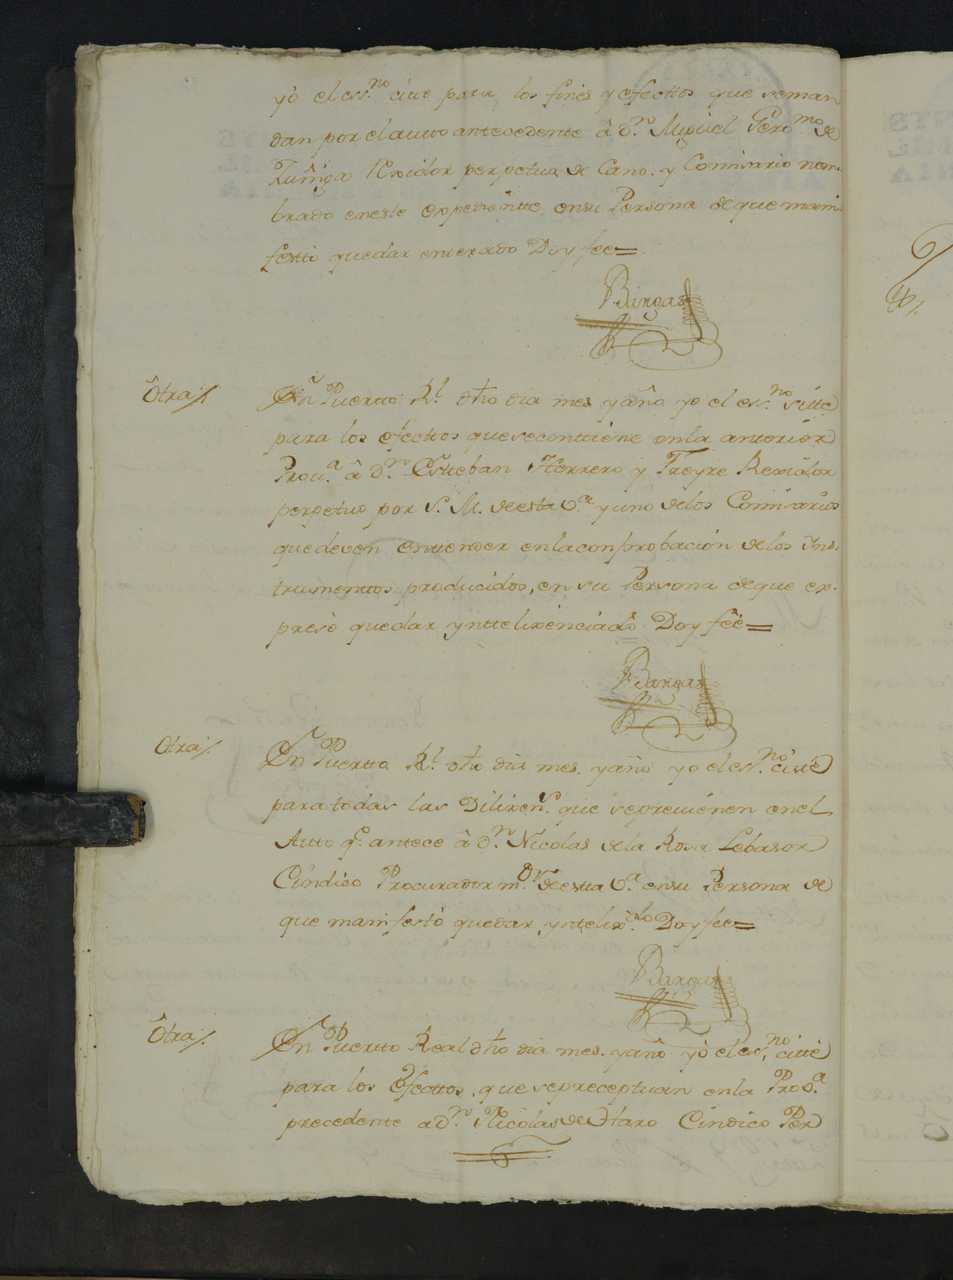 yò el ess.no cite para los fines y efecttos que se man
dan por el autto antecedente â D.n Miguel Geromo de
Zuñiga Rexidor perpetuo de Cano. y Comisario nom-
brado en este expediente, en su Persona de que mani-
festó quedar enterado Doy fee=
Bargas
Ôtra/.
En Puertto R.l dho dia mes y año yo el ess.no citte
para los efecttos que se contiene en la anterior
Prov.a â D.n Esteban Herrero y Freyre Rexidor
perpetuo por S. M. de esta V.a y uno de los Comisarios
que deven entender en la comprobación de los Ins-
trumentos producidos, en su Persona de que ex-
presò quedar ynttelixenciado Doy feê=
Bargas
Otra/.
En Puertto R.l dho dia mes. y año yo el ess.no citte
para todas las Dilixen.s que se previenen en el
Autto q.e antece â D.n Nicolas de la Rosa Lebasor
Cindico Procurador m.or de esta V.a en su Persona de
que manifestó quedar yntelix.do Doy fee=
Bargas
Ôtra/.
En Puertto Real dho dia mes. y año yò el ess.no citte
para los efecttos, que se preceptuan en la Prov.a
precedente a D.n Nicolas de Haro Cindico Per